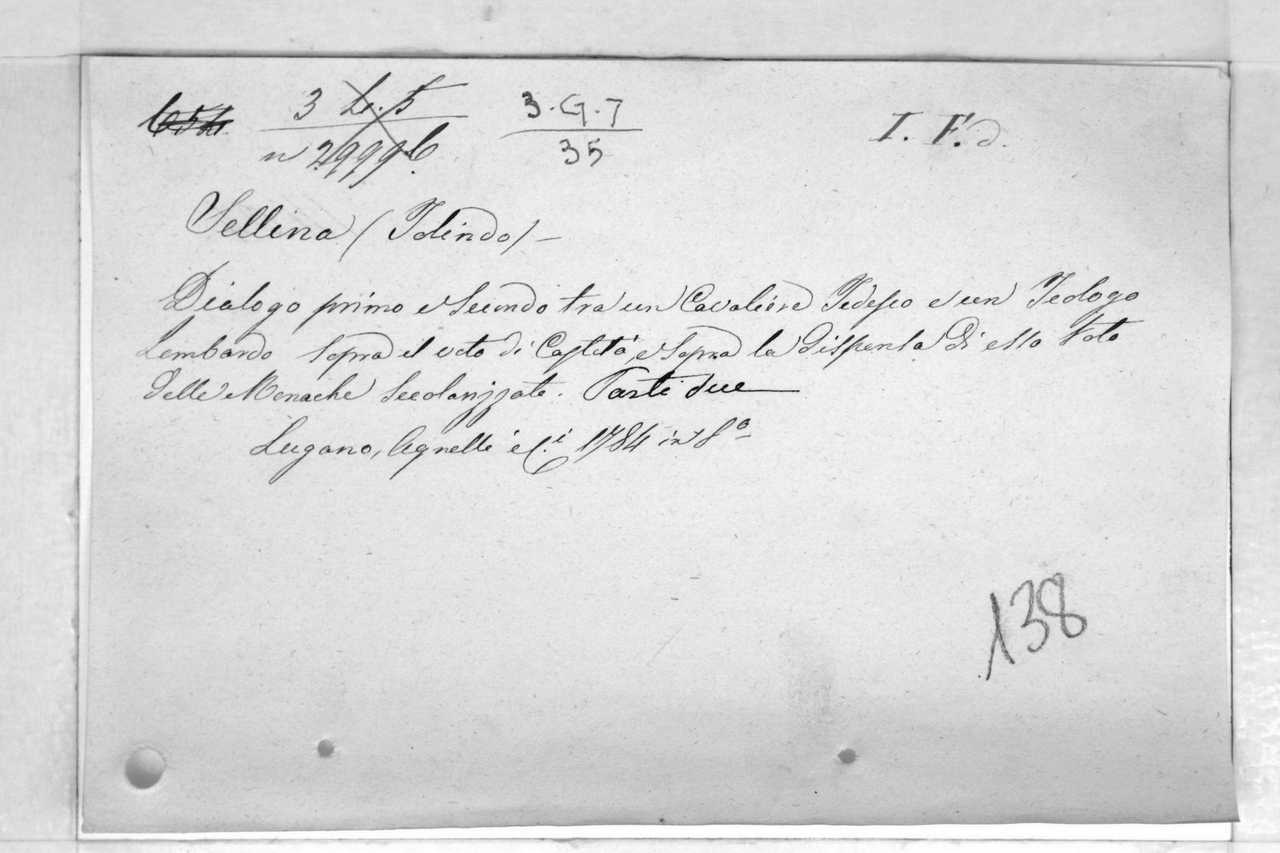 3 L. 5 3.G.7 I. F. d.
n 29996. 35
Sellina (Tolindo) –
Dialogo primo e secondo tra un Cavaliere Tedesco e un Teologo
Lombardo sopra il voto di Castità, e sopra la dispensa di esso Voto
delle Monache secolarizzate. Parti due
Lugano, Agnelli e C.i 1784 in 8o
138